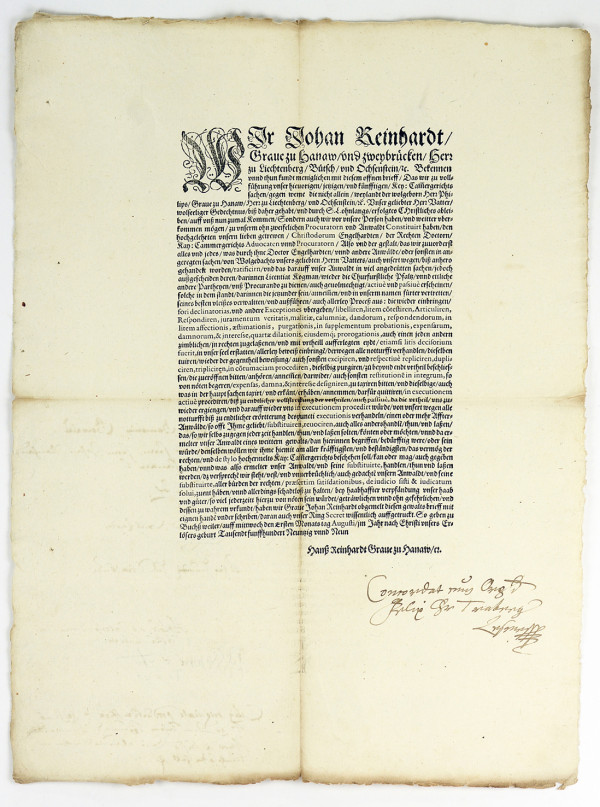 WJr Johan Reinhardt/
Graue zu Hanaw/vnd zweybrücken/ Herr
zu Liechtenberg/ Bütsch/ vnd Ochsenstein/ꝛc. Bekennen
vnnd thun kundt meniglichen mit diesem offnen brieff/ Das wir zu voll-
führung vnser hieuorigen/ jetzigen/ vnd künfftigen/ Key: Cam̃ergerichts
sachen/ gegen weme die nicht allein/ weyland der wolgeborn Herr Phi-
lips/ Graue zu Hanaw/ Herr zu Liechtenberg/ vnd Ochsenstein/ ꝛc. Vnser geliebter Herr Vatter/
wolseeliger Gedechtnus/ biß daher gehabt/ vnd durch S. Lbn. langs/ erfolgtes Christliches ablei-
ben/ auff vnß nun zumal Kommen/ Sondern auch wir vor vnsere Person haben/ vnd weitter vber-
kommen mögen/ zu vnserm ohnzweifelichen Procuratorn vnd Anwaldt Constituirt haben/ den
hochgelehrten vnsern lieben getrewen/ Christodorum Engelhardten/ der Rechten Doctorn/
Kay: Cammergerichts Aduocaten vnnd Procuratorn/ Also vnd der gestalt/ das wir zuuorderst
alles vnd jedes/ was durch ihne Doctor Engelhardten/ vnnd andere Anwälde/ oder sonsten in ans
geregten sachen/ von Wolgedachts vnsers geliebten Herrn Vatters/ auch vnsert wegen/ biß anhero
gehandelt worden/ ratificirn/ vnd das darauff vnser Anwaldt in viel angedeitten sachen/ jedoch
außgescheiden deren/ darinnen Licentiat Kogman/ wieder die Churfürstliche Pfaltz/ vnnd etliche
andere Partheyen/ vnß Procurando zu dienen/ auch genehmschigt/ actiuè vnd paßiuè erscheinen/
solche in dem standt/ darinnen die jeunder sein/ annessen/ vnd in vnserm namen fürter vertretten/
seines besten vleisses verwalten/ vnd außführen/ auch allerley Proceß auß: die wieder einbringen/
fori declinatorias, vnd andere Exceptiones vbergeben/ libelliren, litem cõtestirn, Articuliren,
Respondiren, iuramentum veritatis, malitiæ, calumniæ, dandorum, respondendorum, in
litem affectionis, æstimationis, purgationis, in supplementum probationis, expensarum,
damnorum, & interesse, quartæ dilationis, eiusdemq́; prorogationis, auch einen jeden andern
zimblichen/ in rechten zugelaßenen/ vnd mit vrtheill aufferlegten eydt/ etiamsi litis decisorium
fuerit, in vnser seel erstatten/ allerley beweiß einbringẽ/ derwegen alle notturfft verhandlen/ dieselben
tuiren/ wieder des gegentheil beweißung/ auch sonsten excipirn, vnd respectiuè repliciren, dupli-
ciren, tripliciren, in cõtumaciam procediren, dieselbig purgiren/ zu beyend endt vrtheil beschliessen-
sen/ die zueröffnen bitten/ anhören/ annessen/ darwider/ auch sonsten restitutionẽ in integrum, so
von nöten begeren/ expensas, damna, & interesse designiren, zu taxiren bitten/ vnd dieselbige/ auch
was in der haupt sachen taxirt/ vnd erkänt/ erhäben/ annemmen/ darfür quittiren/ in executionem
actiuè procediren/ biß zu endlicher vollstreckung der vrtheilen/ auch paßiuè, da die vrtheil/ vnß zu
wieder ergiengen/ vnd darauff wieder vns in executionem procedirt würde/ von vnsert wegen alle
notturfft biß zu endlicher erörterung desputirt executionis verhandlen/ einen oder mehr Affter-
Anwälde/ so offt Jhme geliebt/ substituiren, reuociren, auch alles anders handeln/ thun/ vnd laßen/
das/ so wir selbs zugegen jeder zeit handlen/ thun/ vnd laßen solten/ könten oder möchten/ vnnd da er-
melter vnser Anwaldt eines weittern gewalts/ dan hierinnen begriffen/ bedürfftig were/ oder sein
würde/ denselben wöllen wir ihme hiemit am aller kräfftigsten/ vnd beständigsten/ das vermög der
rechten/ vnd de stylo hochermelts Kay: Cam̃ergerichts beschehen soll/ kan oder mag/ auch gegeben
haben/ vnnd was also ermelter vnser Anwaldt/ vnd seine substituirte, handlen/ thun vnd laßen
werden/ dz versprecht wir stehet/ vest/ vnd vnuerbrüchlich/ auch gedacht vnsern Anwaldt/ vnd seine
substituirte, aller bürden der rechten/ præsertim satisdationibus, de iudicio sisti & iudicatum
solui, zuent häben/ vnnd allerdings schadtloß zu halten/ bey haabhaffter verpfändung vnser haab
vnd güter/ so viel jederzeit hierzu von nöten sein würde/ getrewlich vnd ohn gefehrlichen/ vnd
dessen zu wahrem vrkundt/ haben wir Graue Johan Reinhardt obgemelt diesen gewalts brieff mit
eignen handẽ vnder schriben/ daran auch vnser Ring Secret wissentlich auffgetruckt. So geben zu
Buchß weiler/ auff mittwoch den Ersten Monats tag Augusti/ im Jahr nach Christi vnsers Er-
lösers geburt Tausendt funffhundert Neuntzig vnnd Neun
Hanß Reinhardt Graue zu Hanaw/ꝛc.
Concordat cum Orig
Felix